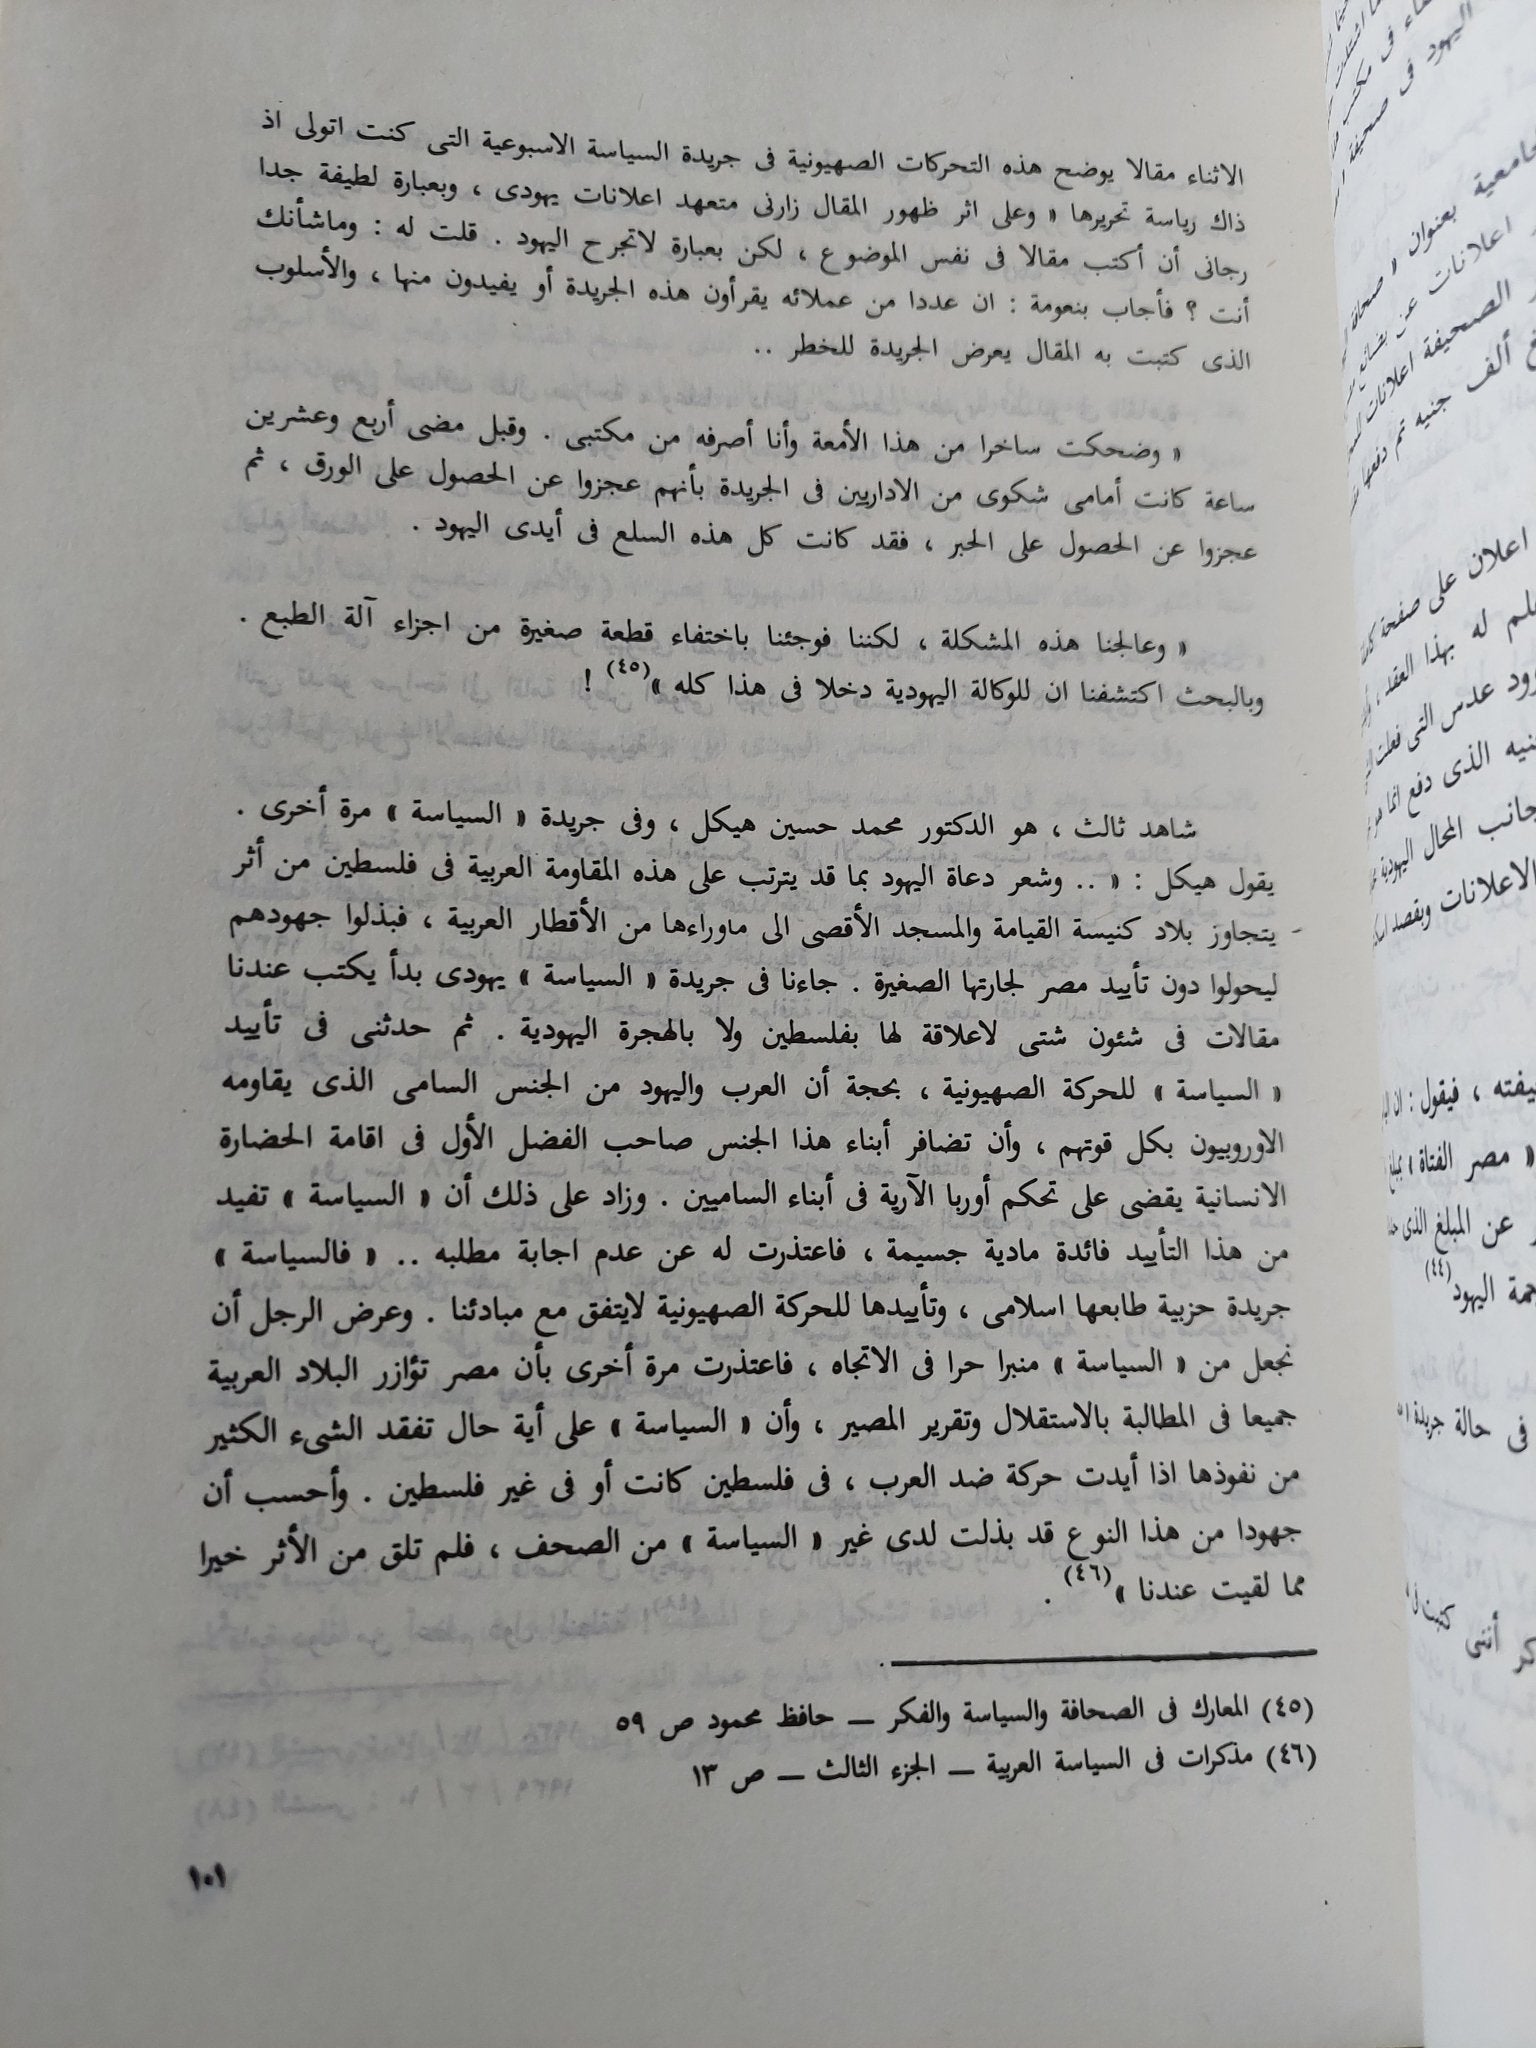 الاثناء مقالا يوضح هذه التحركات الصهيونية فى جريدة السياسة الاسبوعية التى كنت اتولى اذ
ذاك رياسة تحريرها « وعلى اثر ظهور المقال زارنى متعهد اعلانات يهودى ، وبعبارة لطيفة جدا
رجانى أن أكتب مقالا فى نفس الموضوع ، لكن بعبارة لاتجرح اليهود . قلت له : وماشأنك
أنت ؟ فأجاب بنعومة : ان عددا من عملائه يقرأون هذه الجريدة أو يفيدون منها ، والأسلوب
الذى كتبت به المقال يعرض الجريدة للخطر ..
« وضحكت ساخرا من هذا الأمعة وأنا أصرفه من مكتبى . وقبل مضى أربع وعشرين
ساعة كانت أمامى شكوى من الاداريين فى الجريدة بأنهم عجزوا عن الحصول على الورق ، ثم
عجزوا عن الحصول على الحبر ، فقد كانت كل هذه السلع فى أيدى اليهود .
« وعالجنا هذه المشكلة ، لكننا فوجئنا باختفاء قطعة صغيرة من اجزاء آلة الطبع .
وبالبحث اكتشفنا ان للوكالة اليهودية دخلا فى هذا كله »(٤٥) !
شاهد ثالث ، هو الدكتور محمد حسين هيكل ، وفى جريدة « السياسة » مرة أخرى .
يقول هيكل : « .. وشعر دعاة اليهود بما قد يترتب على هذه المقاومة العربية فى فلسطين من أثر
يتجاوز بلاد كنيسة القيامة والمسجد الأقصى الى ماوراءها من الأقطار العربية ، فبذلوا جهودهم
ليحولوا دون تأييد مصر لجارتها الصغيرة . جاءنا فى جريدة « السياسة » يهودى بدأ يكتب عندنا
مقالات فى شئون شتى لاعلاقة لها بفلسطين ولا بالهجرة اليهودية . ثم حدثنى فى تأييد
« السياسة » للحركة الصهيونية ، بحجة أن العرب واليهود من الجنس السامى الذى يقاومه
الاوروبيون بكل قوتهم ، وأن تضافر أبناء هذا الجنس صاحب الفضل الأول فى اقامة الحضارة
الانسانية يقضى على تحكم أوربا الآرية فى أبناء الساميين . وزاد على ذلك أن « السياسة » تفيد
من هذا التأييد فائدة مادية جسيمة ، فاعتذرت له عن عدم اجابة مطلبه .. « فالسياسة »
جريدة حزبية طابعها اسلامى ، وتأييدها للحركة الصهيونية لايتفق مع مبادئنا . وعرض الرجل أن
نجعل من « السياسة » منبرا حرا فى الاتجاه ، فاعتذرت مرة أخرى بأن مصر تؤازر البلاد العربية
جميعا فى المطالبة بالاستقلال وتقرير المصير ، وأن « السياسة » على أية حال تفقد الشىء الكثير
من نفوذها اذا أيدت حركة ضد العرب ، فى فلسطين كانت أو فى غير فلسطين . وأحسب أن
جهودا من هذا النوع قد بذلت لدى غير « السياسة » من الصحف ، فلم تلق من الأثر خيرا
مما لقيت عندنا »(٤٦) .
(٤٥) المعارك فى الصحافة والسياسة والفكر — حافظ محمود ص ٥٩
(٤٦) مذكرات فى السياسة العربية — الجزء الثالث — ص ١٣
١٠١
اليهود فى صحيفة
بعنوان « صحافة
اعلانات عن بضائع
الصحيفة اعلانات
ألف جنيه تم دفعها
اعلان على صفحة
له بهذا العقد ،
عدس التى فعلت
الذى دفع انما هو
جانب المحال اليهودية
الاعلانات وبقصد
، فيقول : ان
« مصر الفتاة »
عن المبلغ الذى
اليهود(٤٤)
فى حالة جريدة
أننى كتبت فى